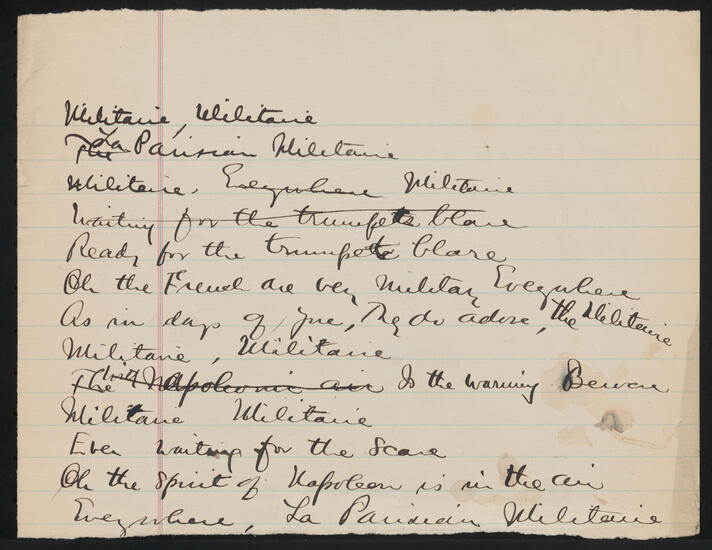 Militaire, Militaire
The La Parisian Militaire
Militaire. Everywhere Militaire
Waiting for the trumpets blare
Ready for the trumpets blare
Oh the French are very military Everywhere
As in days of yore, They do adore, the Militaire
Militaire, Militaire
The Napoleonic air Is the warning Beware
Militaire Militaire
Ever waiting for the Scare
Oh the Spirit of Napoleon is in the air
Everywhere, La Parisian Militaire